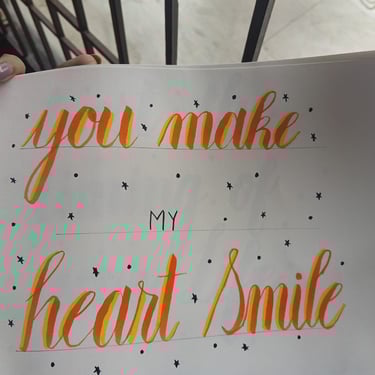 you make
MY
heart Smile